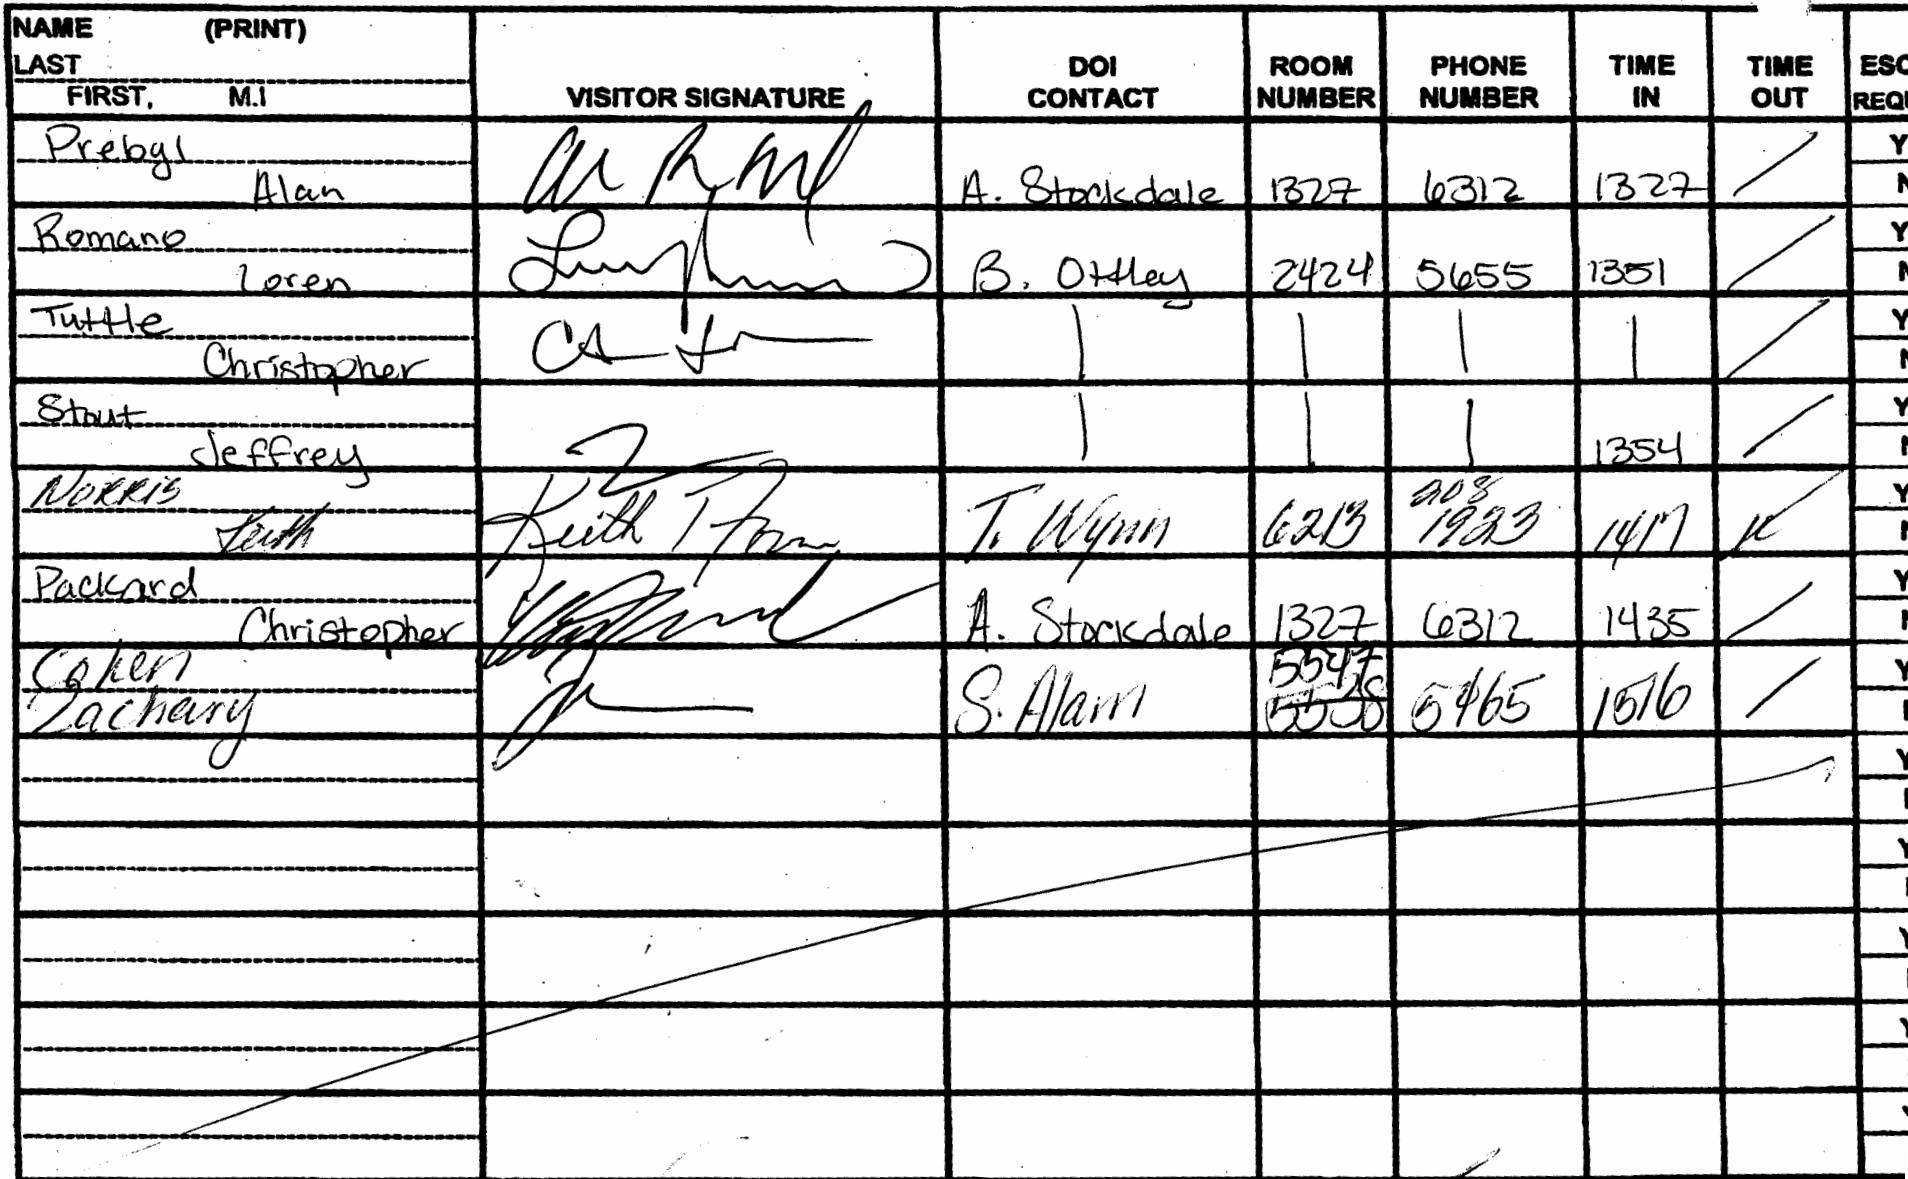 NAME (PRINT)
LAST
FIRST, M.I
VISITOR SIGNATURE
DOI CONTACT
ROOM NUMBER
PHONE NUMBER
TIME IN
TIME OUT
Prebyl
Alan A. Stockdale 1327 6312 1327 /
Y
N
Romano
Loren B. Ottley 2424 5655 1351 /
Y
N
Tuttle
Christopher | | | | /
Y
N
Stout
Jeffrey | | | 1354 /
Y
N
Norris
Keith Keith T. Wynn 6213 208 1923 1417
Y
N
Packard
Christopher A. Stockdale 1327 6312 1435 /
Y
N
Cohen
Zachary S. Alam 5547 5465 1516 /
Y